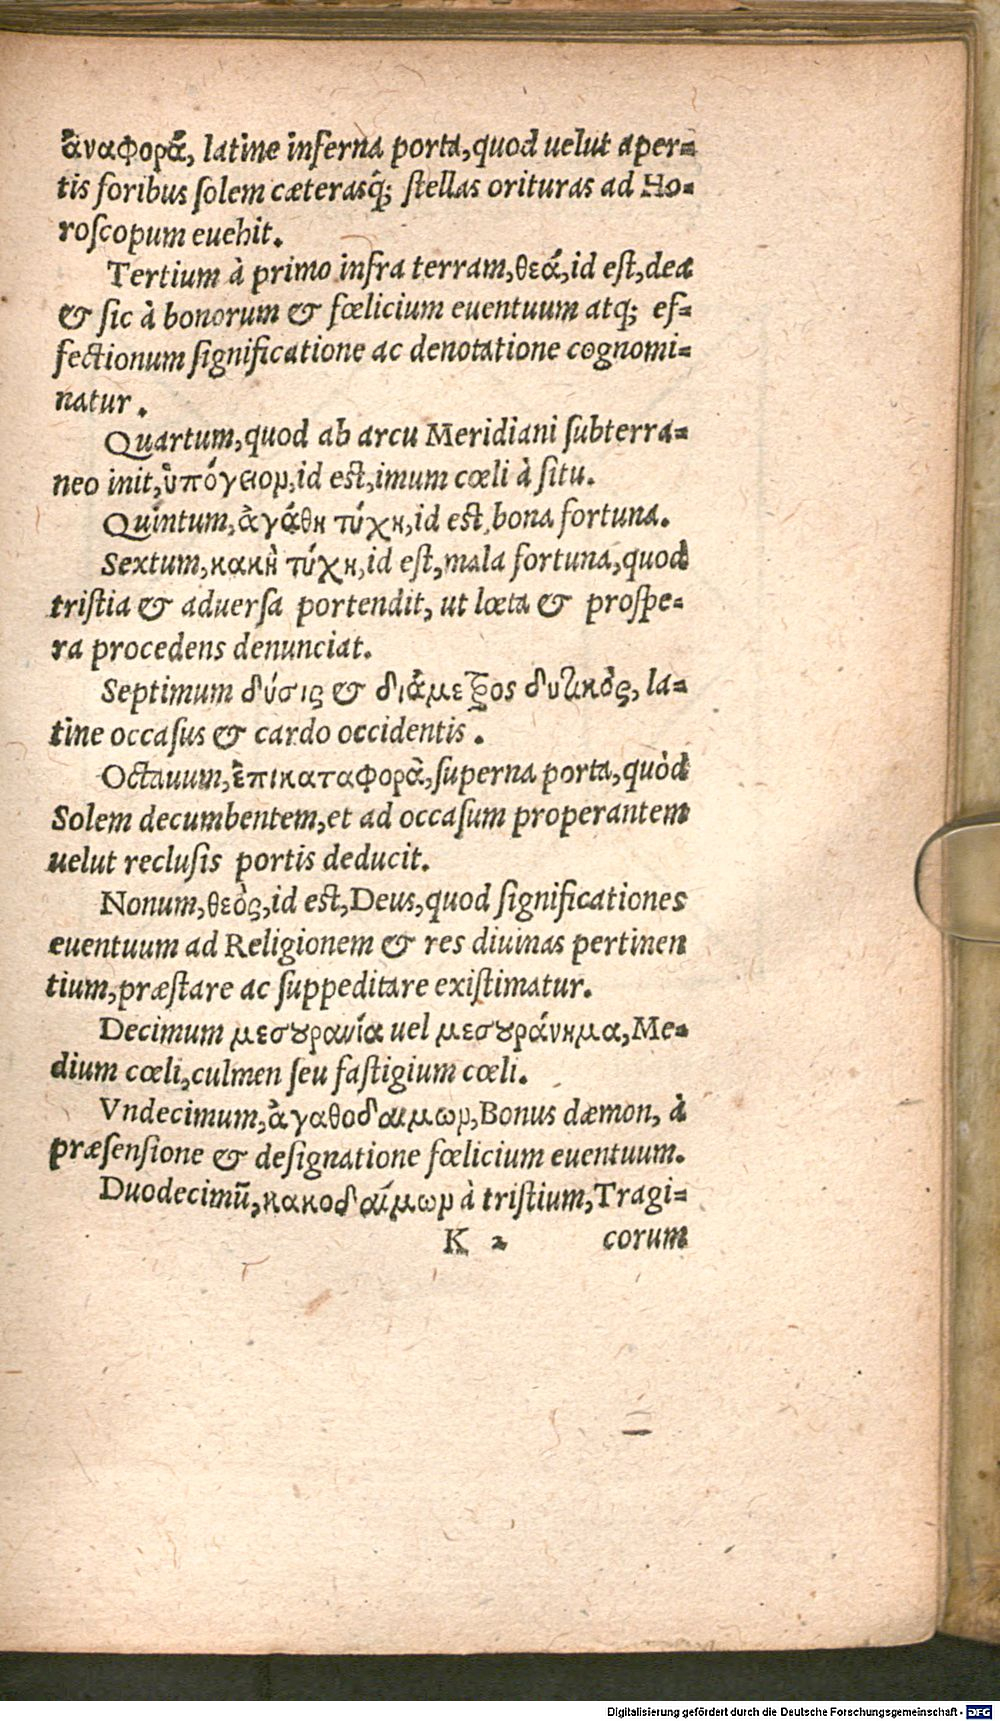 ἀναφορά, latine inferna porta, quod uelut aper-
tis foribus solem cæterasq́; stellas orituras ad Ho-
roscopum euehit.
Tertium à primo infra terram, θεά, id est, dea
& sic à bonorum & fœlicium euentuum atq; ef-
fectionum significatione ac denotatione cognomi-
natur.
Quartum, quod ab arcu Meridiani subterra-
neo init, ὑπόγειον, id est, imum cœli à situ.
Quintum, ἀγάθη τύχη, id est, bona fortuna.
Sextum, κακὴ τύχη, id est, mala fortuna, quod
tristia & aduersa portendit, ut lœta & prospe-
ra procedens denunciat.
Septimum δύσις & διάμετρος δυτικὸς, la-
tine occasus & cardo occidentis.
Octauum, ἐπικαταφορὰ, superna porta, quòd
Solem decumbentem, et ad occasum properantem
uelut reclusis portis deducit.
Nonum, θεὸς, id est, Deus, quod significationes
euentuum ad Religionem & res diuinas pertinen
tium, præstare ac suppeditare existimatur.
Decimum μεσουρανία uel μεσουράνημα, Me-
dium cœli, culmen seu fastigium cœli.
Vndecimum, ἀγαθοδαιμων, Bonus dæmon, à
præsensione & designatione fœlicium euentuum.
Duodecimū, κακοδαίμων à tristium, Tragi-
K 2 corum
Digitalisierung gefördert durch die Deutsche Forschungsgemeinschaft - DFG